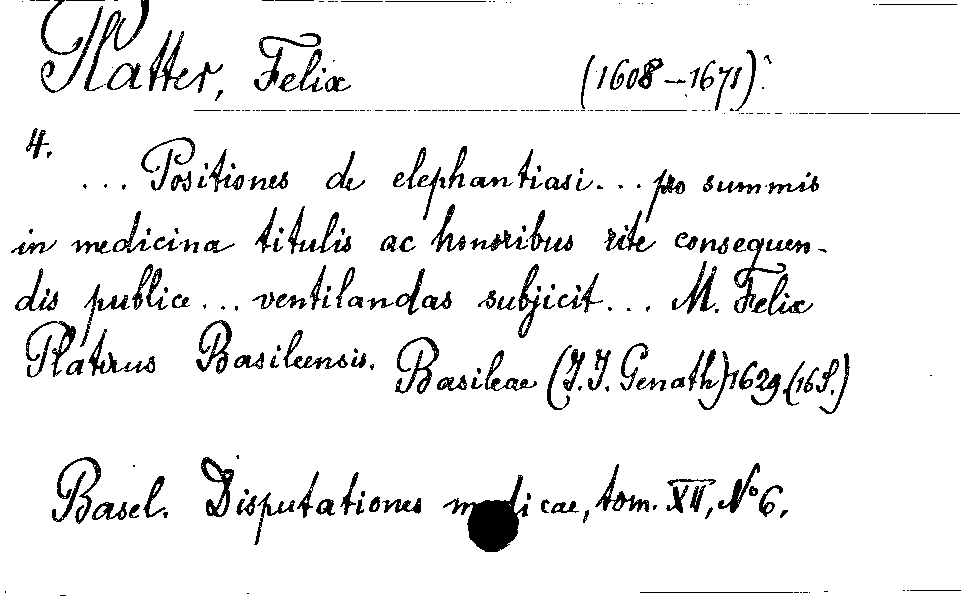 Platter, Felix (1608-1671).
4.
... Positiones de elephantiasi... pro summis
in medicina titulis ac honoribus rite consequen-
dis publice... ventilandas subjicit... M. Felix
Platerus Basileensis. Basileae (J.J. Genath) 1629. (16 S.)
Basel. Disputationes medicae, tom. XII, No 6.